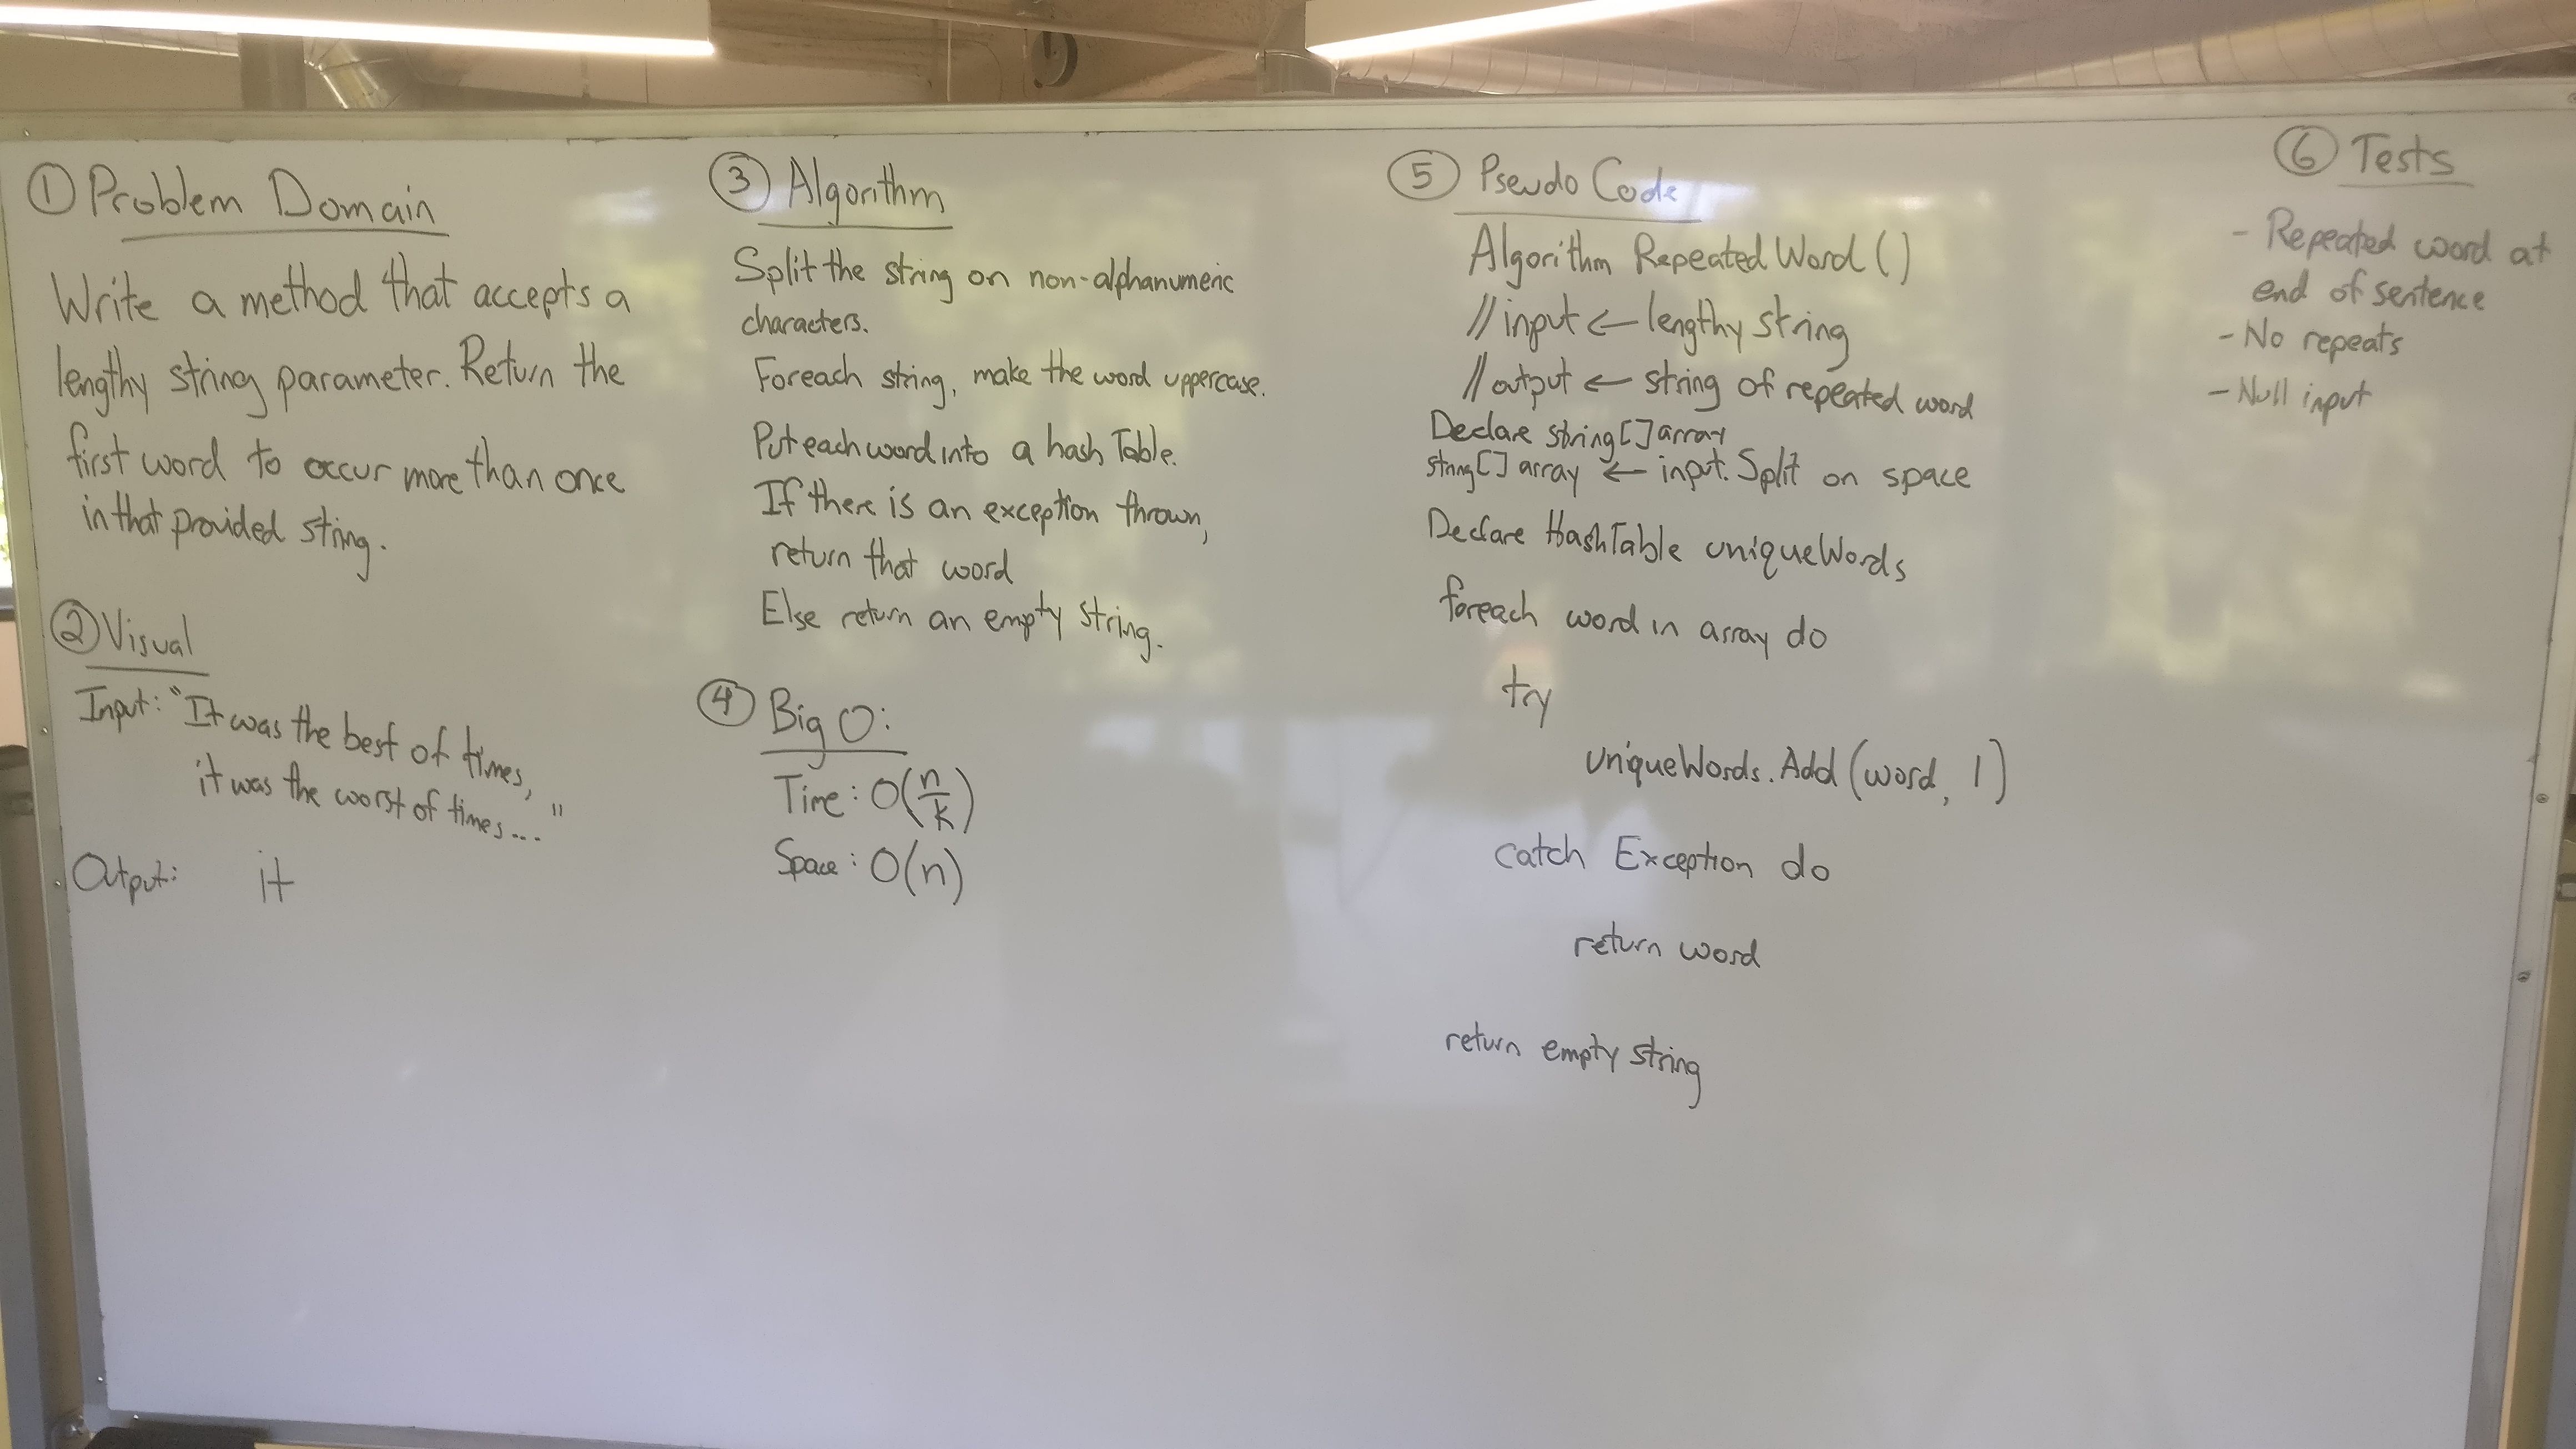 ① Problem Domain
Write a method that accepts a
lengthy string parameter. Return the
first word to occur more than once
in that provided string.
② Visual
Input: "It was the best of times,
it was the worst of times..."
Output: it
③ Algorithm
Split the string on non-alphanumeric
characters.
Foreach string, make the word uppercase.
Put each word into a hash Table.
If there is an exception thrown,
return that word
Else return an empty string.
④ Big O:
Time: O(n/k)
Space: O(n)
⑤ Pseudo Code
Algorithm RepeatedWord()
// input ← lengthy string
// output ← string of repeated word
Declare string[] array
string[] array ← input. Split on space
Declare HashTable uniqueWords
foreach word in array do
try
uniqueWords.Add(word, 1)
catch Exception do
return word
return empty string
⑥ Tests
- Repeated word at
end of sentence
- No repeats
- Null input